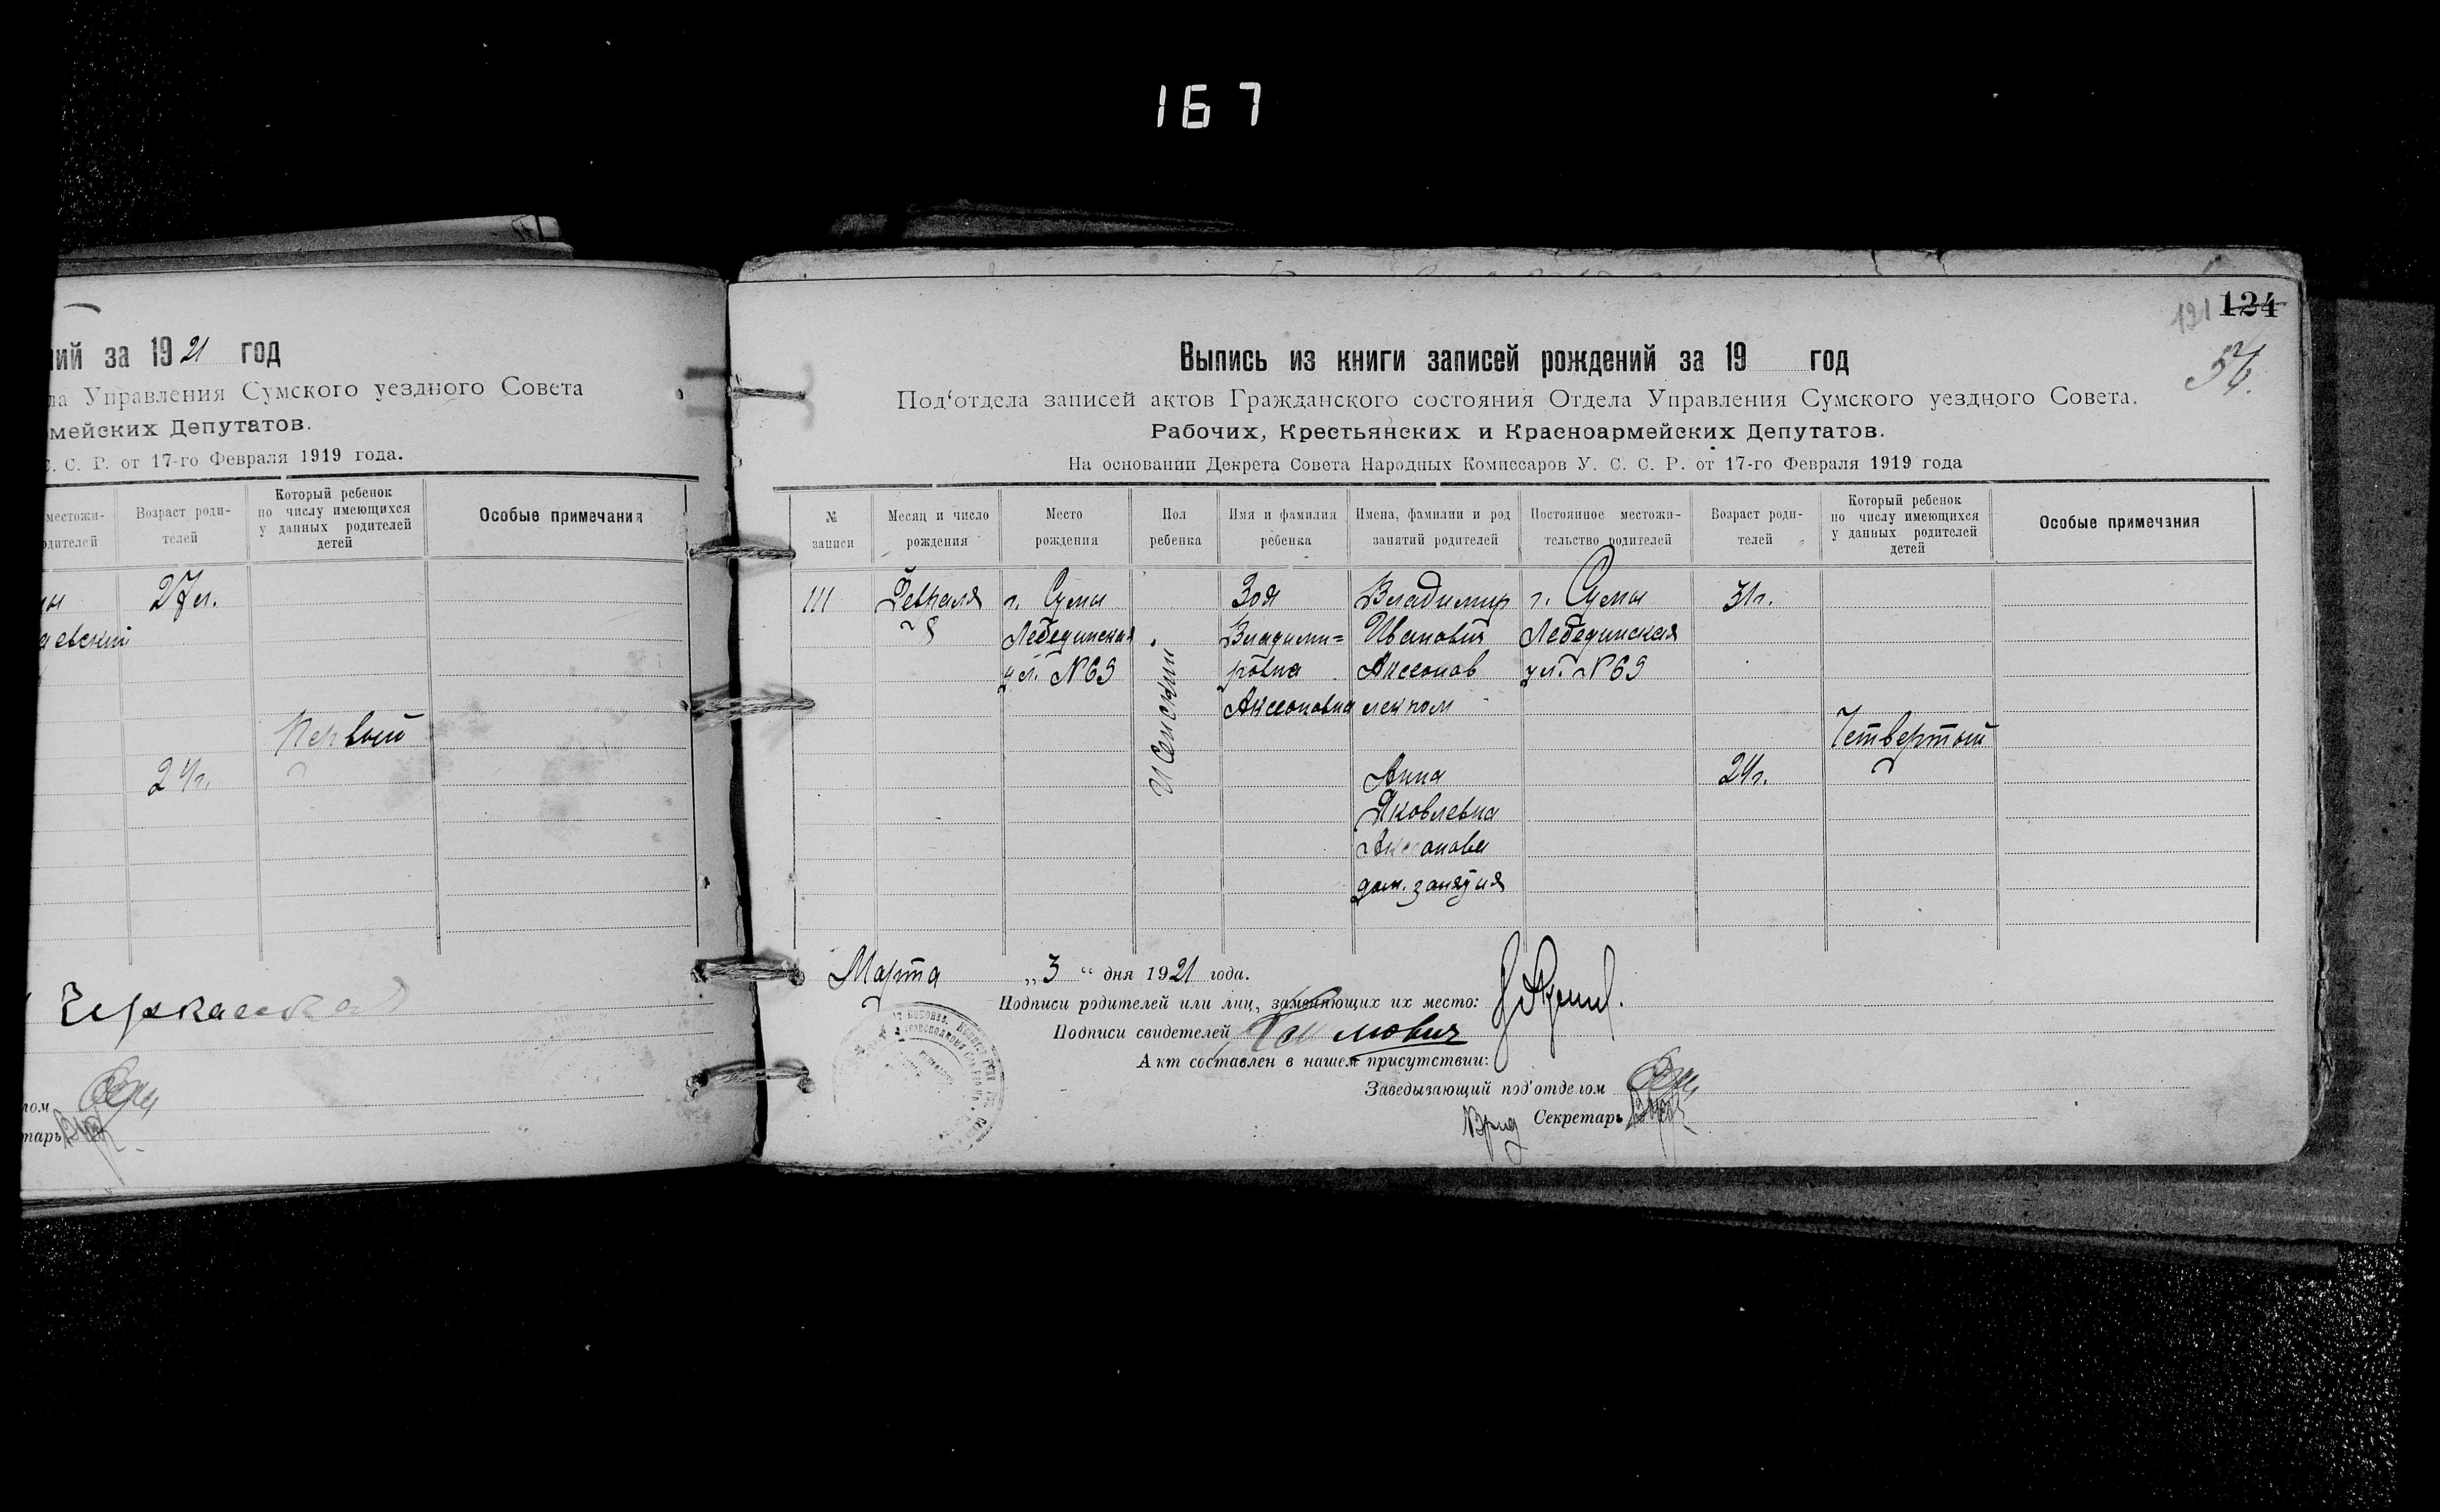 167
ий за 1921 год
ла Управления Сумского уездного Совета
мейских Депутатов.
С. С. Р. от 17-го Февраля 1919 года.
местожи-
одителей
Возраст роди-
телей
Который ребенок
по числу имеющихся
у данных родителей
детей
Особые примечания
27 л.
аевский
Первый
24 г.
Черкасская
лом
тарь
121 124
Выпись из книги записей рождений за 19 год
Под‘отдела записей актов Гражданского состояния Отдела Управления Сумского уездного Совета.
Рабочих, Крестьянских и Красноармейских Депутатов.
На основании Декрета Совета Народных Комиссаров У. С. С. Р. от 17-го Февраля 1919 года
№
записи
Месяц и число
рождения
Место
рождения
Пол
ребенка
Имя и фамилия
ребенка
Имена, фамилии и род
занятий родителей
Постоянное местожи-
тельство родителей
Возраст роди-
телей
Который ребенок
по числу имеющихся
у данных родителей
детей
Особые примечания
111
Февраля
8
г. Сумы
Лебединская
ул. №69
Женский
Зоя
Владими=
ровна
Владимир
Иванович
Аксонов
г. Сумы
Лебединская
ул. №69
31 г.
Четвертый
Анна
Яковлевна
24 г.
дом. занятия
Марта „3“ дня 1921 года.
Подписи родителей или лиц, заменяющих их место:
Подписи свидетелей
Акт составлен в нашем присутствии:
Заведывающий под‘отделом
Секретарь